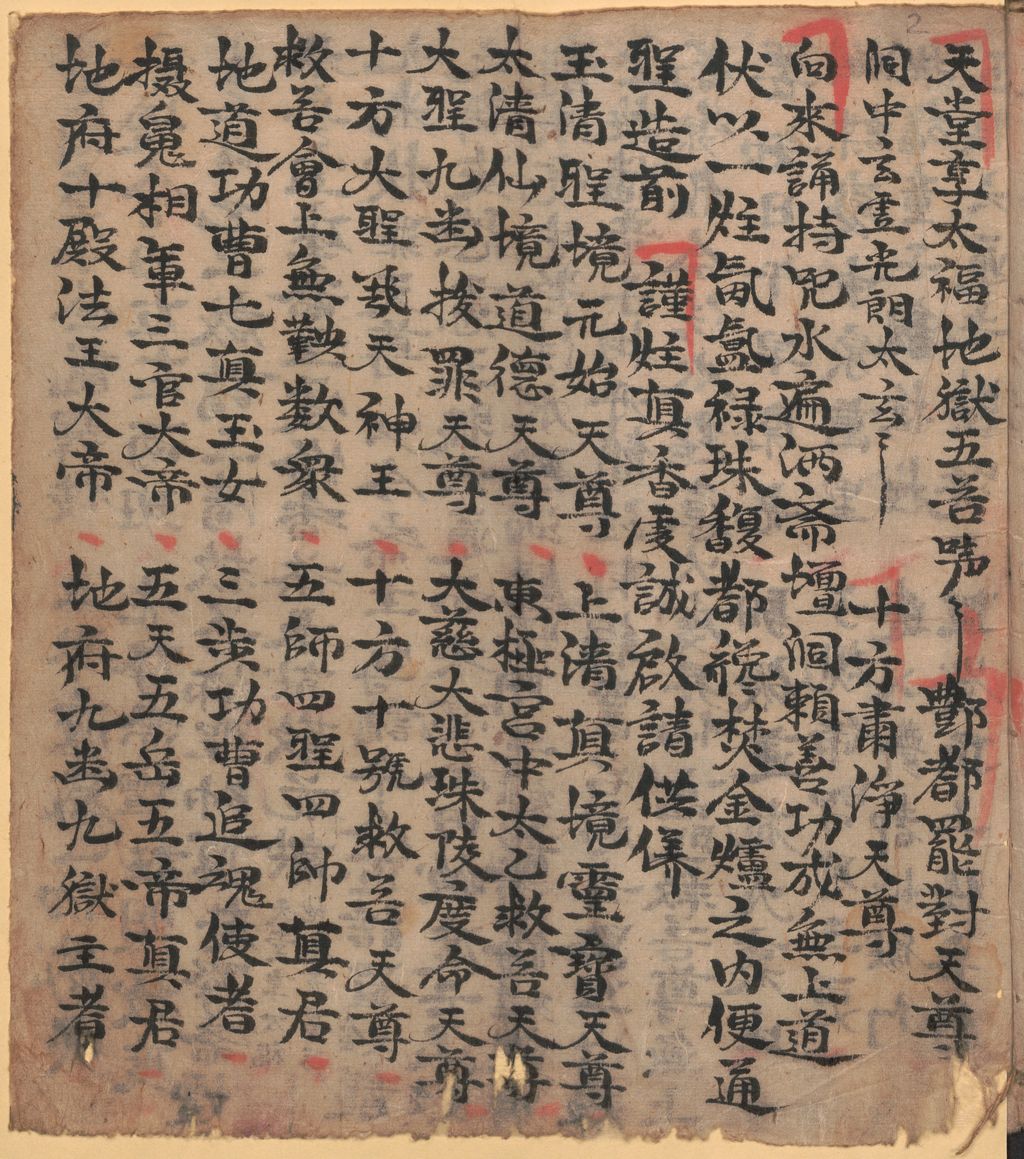 天堂享太福地獄五苦 酆都罷對天尊
洞中玄虛光朗太玄 十方肅淨天尊
向來誦持咒水遍洒斋壇洞賴善功成無上道
伏以一炷氤氳祿珠馥都纔焚金爐之內便通
聖造前 謹炷真香虔誠啟請供养
玉清聖境元始天尊 上清真境靈寶天尊
太清仙境道德天尊 東極宮中太乙救苦天尊
大聖九幽拔罪天尊 大慈大悲珠陵度命天尊
十方大聖飛天神王 十方十號救苦天尊
救苦會上無鞅数众 五師四聖四帥真君
地道功曹七真玉女 三界功曹追魂使者
摄鬼相軍三官大帝 五天五岳五帝真君
地府十殿法王大帝 地府九幽九獄主者
2